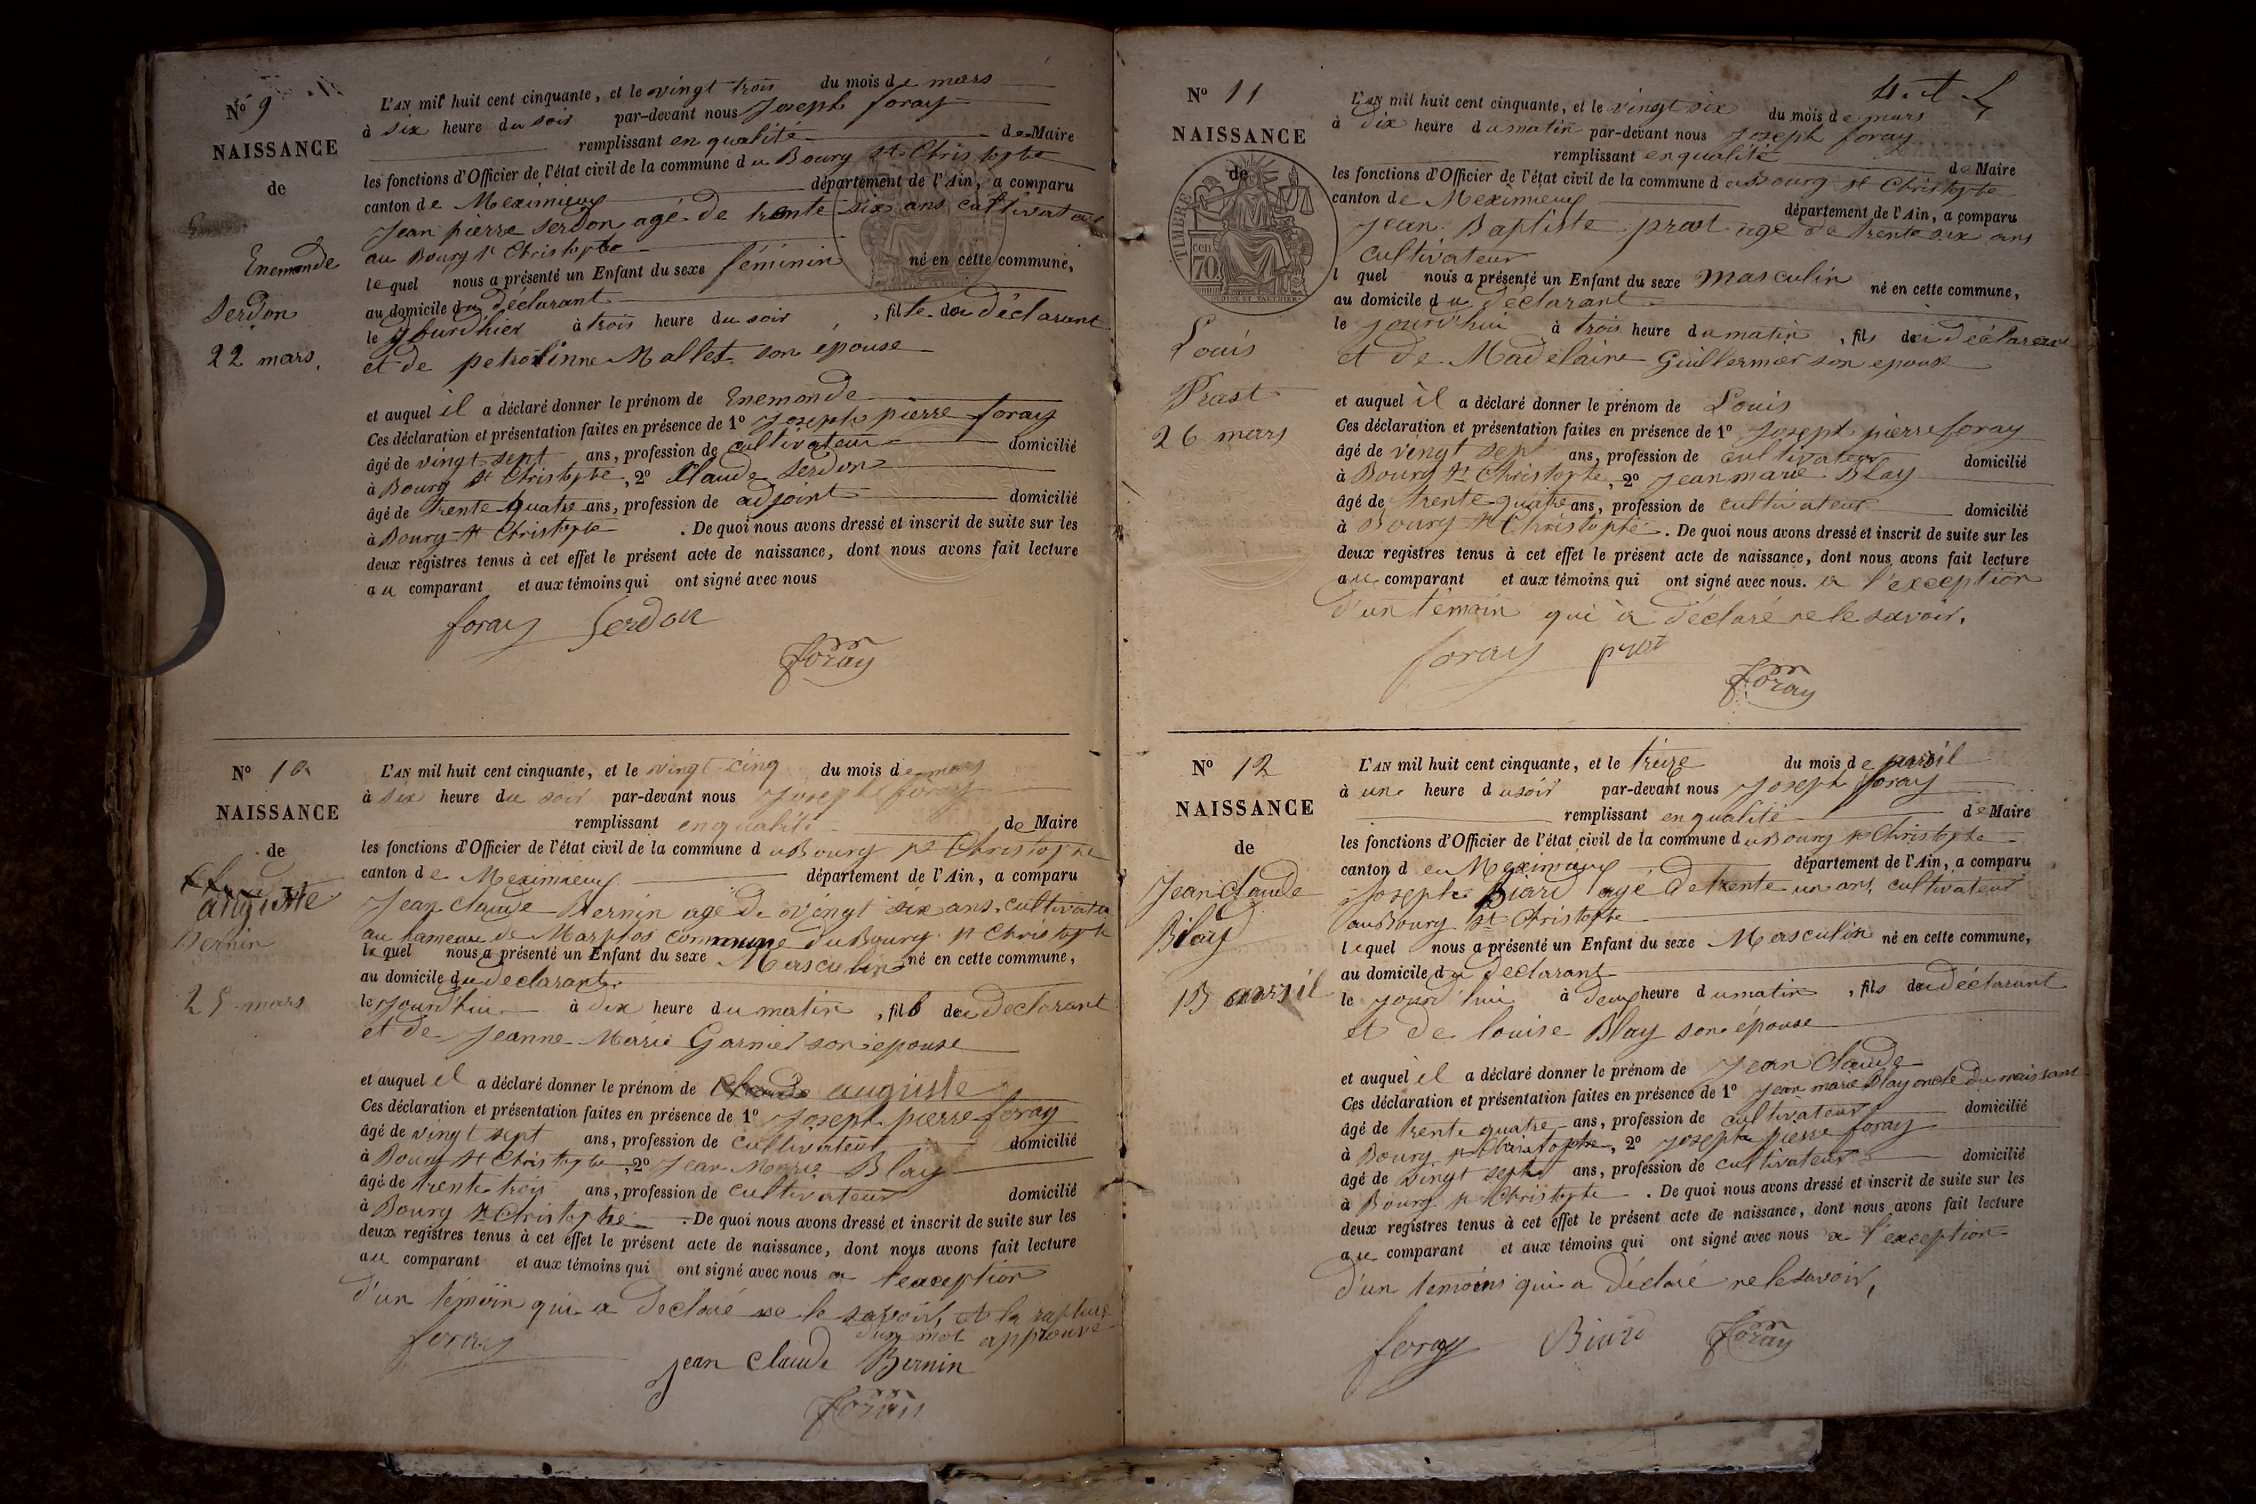 Nº 9
NAISSANCE
de
Enemonde
Serdon
22 mars.
L'AN mil huit cent cinquante, et le vingt trois du mois de mars
à six heure du soir par-devant nous Joseph foray
remplissant en qualité de Maire
les fonctions d'Officier de l'état civil de la commune du Bourg St Christophe
canton de Meximieux département de l'Ain, a comparu
Jean pierre Serdon agé de trente six ans cultivateur
au Bourg St Christophe
lequel nous a présenté un Enfant du sexe féminin né en cette commune,
au domicile du déclarant
le jourdhier à trois heure du soir, fille du déclarant
et de petrolinne Mallet son épouse
et auquel il a déclaré donner le prénom de Enemonde
Ces déclaration et présentation faites en présence de 1º Joseph pierre foray
âgé de vingt sept ans, profession de cultivateur domicilié
à Bourg St Christophe, 2º Claude Serdon
âgé de trente quatre ans, profession de adjoint domicilié
à Bourg St Christophe. De quoi nous avons dressé et inscrit de suite sur les
deux registres tenus à cet effet le présent acte de naissance, dont nous avons fait lecture
au comparant et aux témoins qui ont signé avec nous
foray Serdon
foray
Nº 10
NAISSANCE
de
auguste
Bernin
25 mars
L'AN mil huit cent cinquante, et le vingt cinq du mois de mars
à six heure du soir par-devant nous Joseph foray
remplissant en qualité de Maire
les fonctions d'Officier de l'état civil de la commune du Bourg St Christophe
canton de Meximieux département de l'Ain, a comparu
Jean claude Bernin agé de vingt six ans, cultivateur
au hameau de Marfhos commune du Bourg St Christophe
lequel nous a présenté un Enfant du sexe Masculin né en cette commune,
au domicile du declarant
le jourd'hui à dix heure du matin, fils du declarant
et de Jeanne Marie Garnier son épouse
et auquel il a déclaré donner le prénom de Claude auguste
Ces déclaration et présentation faites en présence de 1º Joseph pierre foray
âgé de vingt sept ans, profession de cultivateur domicilié
à Bourg St Christophe, 2º Jean Marie Blay
âgé de trente trois ans, profession de cultivateur domicilié
à Bourg St Christophe. De quoi nous avons dressé et inscrit de suite sur les
deux registres tenus à cet effet le présent acte de naissance, dont nous avons fait lecture
au comparant et aux témoins qui ont signé avec nous a l'exception
d'un témoin qui a declaré ne le savoir, et la rapture
d'un mot approuvé
foray
jean claude Bernin
foray
4.
Nº 11
NAISSANCE
de
TIMBRE
70
Louis
Prast
26 mars
L'AN mil huit cent cinquante, et le vingt six du mois de mars
à dix heure du matin par-devant nous Joseph foray
remplissant en qualité de Maire
les fonctions d'Officier de l'état civil de la commune du Bourg St Christophe
canton de Meximieux département de l'Ain, a comparu
Jean Baptiste prast agé de trente six ans
cultivateur
l quel nous a présenté un Enfant du sexe Masculin né en cette commune,
au domicile du déclarant
le jourd'hui à trois heure du matin, fils du déclarant
et de Madelaine Guillermer son epouse
et auquel il a déclaré donner le prénom de Louis
Ces déclaration et présentation faites en présence de 1º Joseph pierre foray
âgé de vingt sept ans, profession de cultivateur domicilié
à Bourg St Christophe, 2º Jean marie Blay
âgé de trente quatre ans, profession de cultivateur domicilié
à Bourg St Christophe. De quoi nous avons dressé et inscrit de suite sur les
deux registres tenus à cet effet le présent acte de naissance, dont nous avons fait lecture
au comparant et aux témoins qui ont signé avec nous. a l'exception
d'un témoin qui à déclaré ne le savoir.
foray prost
foray
Nº 12
NAISSANCE
de
Jean Claude
Biard
13 avril
L'AN mil huit cent cinquante, et le treize du mois de avril
à une heure du soir par-devant nous Joseph foray
remplissant en qualité de Maire
les fonctions d'Officier de l'état civil de la commune du Bourg St Christophe
canton de Meximieux département de l'Ain, a comparu
Joseph Biard agé de trente un ans, cultivateur
au Bourg St Christophe
lequel nous a présenté un Enfant du sexe Masculin né en cette commune,
au domicile du declarant
le jourd'hui à deux heure du matin, fils du déclarant
et de louise Blay son épouse
et auquel il a déclaré donner le prénom de Jean Claude
Ces déclaration et présentation faites en présence de 1º Jean marie Blay oncle du naissant
âgé de trente quatre ans, profession de cultivateur domicilié
à Bourg St Christophe, 2º Joseph pierre foray
âgé de vingt sept ans, profession de cultivateur domicilié
à Bourg St Christophe. De quoi nous avons dressé et inscrit de suite sur les
deux registres tenus à cet effet le présent acte de naissance, dont nous avons fait lecture
au comparant et aux témoins qui ont signé avec nous a l'exception
d'un temoins qui a déclaré ne le savoir,
foray Biard foray